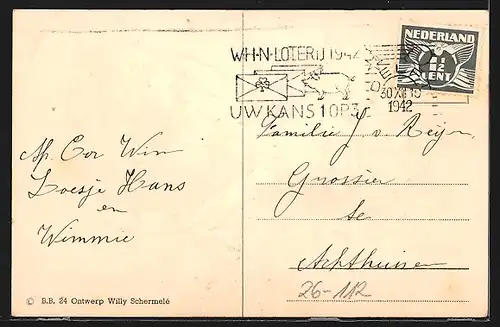 W·H·N·LOTERIJ 1942
UW KANS 1 OP 3
30 XII 19
1942
NEDERLAND
1½
CENT
Familie v. Reijn
Grossier
te
Achthuizen
26-112
Afz. Cor Wim
Loesje Hans
en
Wimmie
© B.B. 24 Ontwerp Willy Schermelé